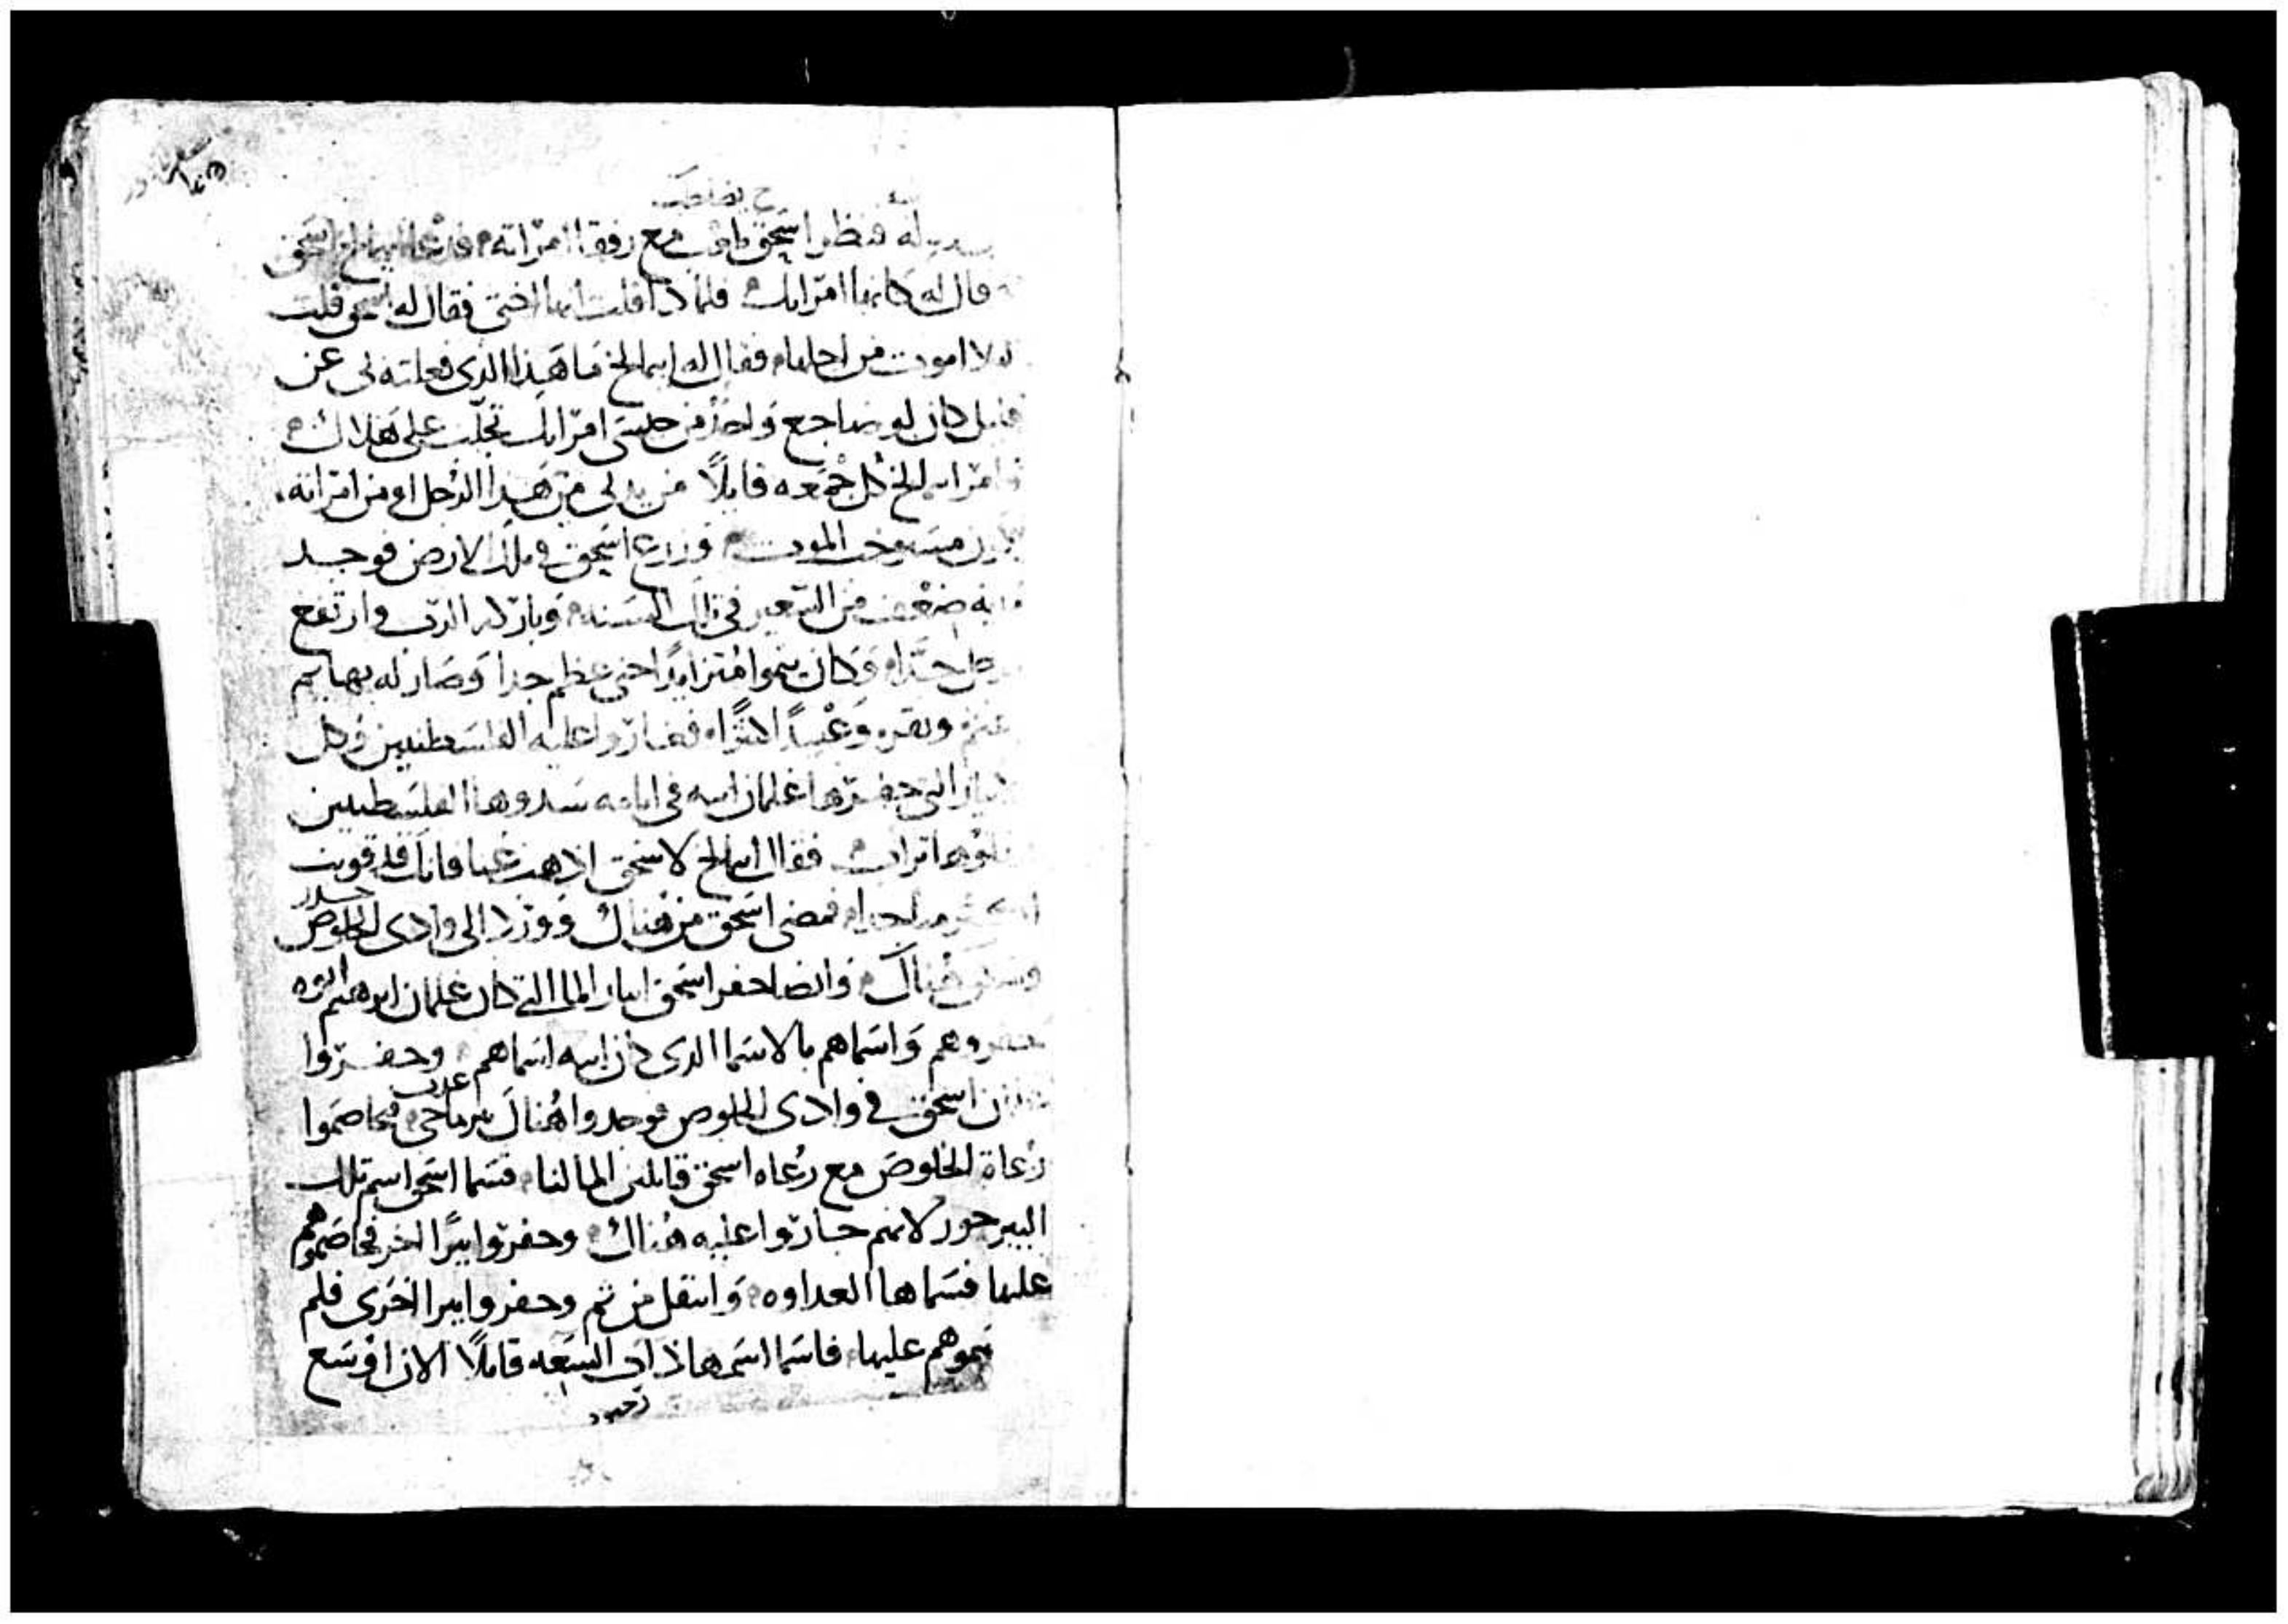 له فنظر اسحق يلعب مع رفقا امراته فدعا ابيمالخ اسحق
وقال له كانها امراتك فلماذا قلت انها اختي فقال له اسحق قلت
لالا اموت من اجلها فقال له ابيمالخ ما هذا الذي فعلته بي عن
قليل كان لو ضاجع واحد من جنسي امراتك تجلب على هلاك
ابيمالخ كل جمعه قايلا من يدنى من هذا الرجل او من امراته
مستوجب الموت وزرع اسحق في تلك الارض فوجد
ضعف من الشعير في تلك السنه وبارك الرب وارتفع
جدا وكان ينموا متزايدا حتى عظم جدا وصار له بهايم
غنم وبقر وعبيدا كثيرا فغاروا عليه الفلسطنيين وكل
الابيار التي حفرها غلمان ابيه في ايامه سدوها الفلسطيين
وملوها تراب فقال ابيمالخ لاسحق اذهب عنا فانك قد قويت
جدا فمضى اسحق من هناك وورد الى وادى الخلوص
وسكن هناك وايضا حفر اسحق ابيار الما التي كان غلمان ابرهيم ابوه
حفروهم واسماهم بالاسما الذى كان ابيه اسماهم وحفروا
غلمان اسحق في وادى الخلوص فوجدوا هناك بير ما حي فخاصموا
رعاة الخلوص مع رعاه اسحق قايلين الما لنا فسما اسحق اسم تلك
البير جور لانهم جاروا عليه هناك وحفروا بيرا اخر فخاصموهم
عليها فسماها العداوه وانتقل من ثم وحفروا بيرا اخرى فلم
موهم عليها فاسما اسمها ذات السعه قايلا الان اوسع